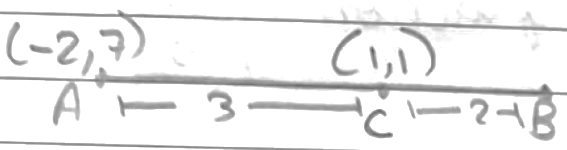 (-2,7) (1,1)
A 3 C 2 B